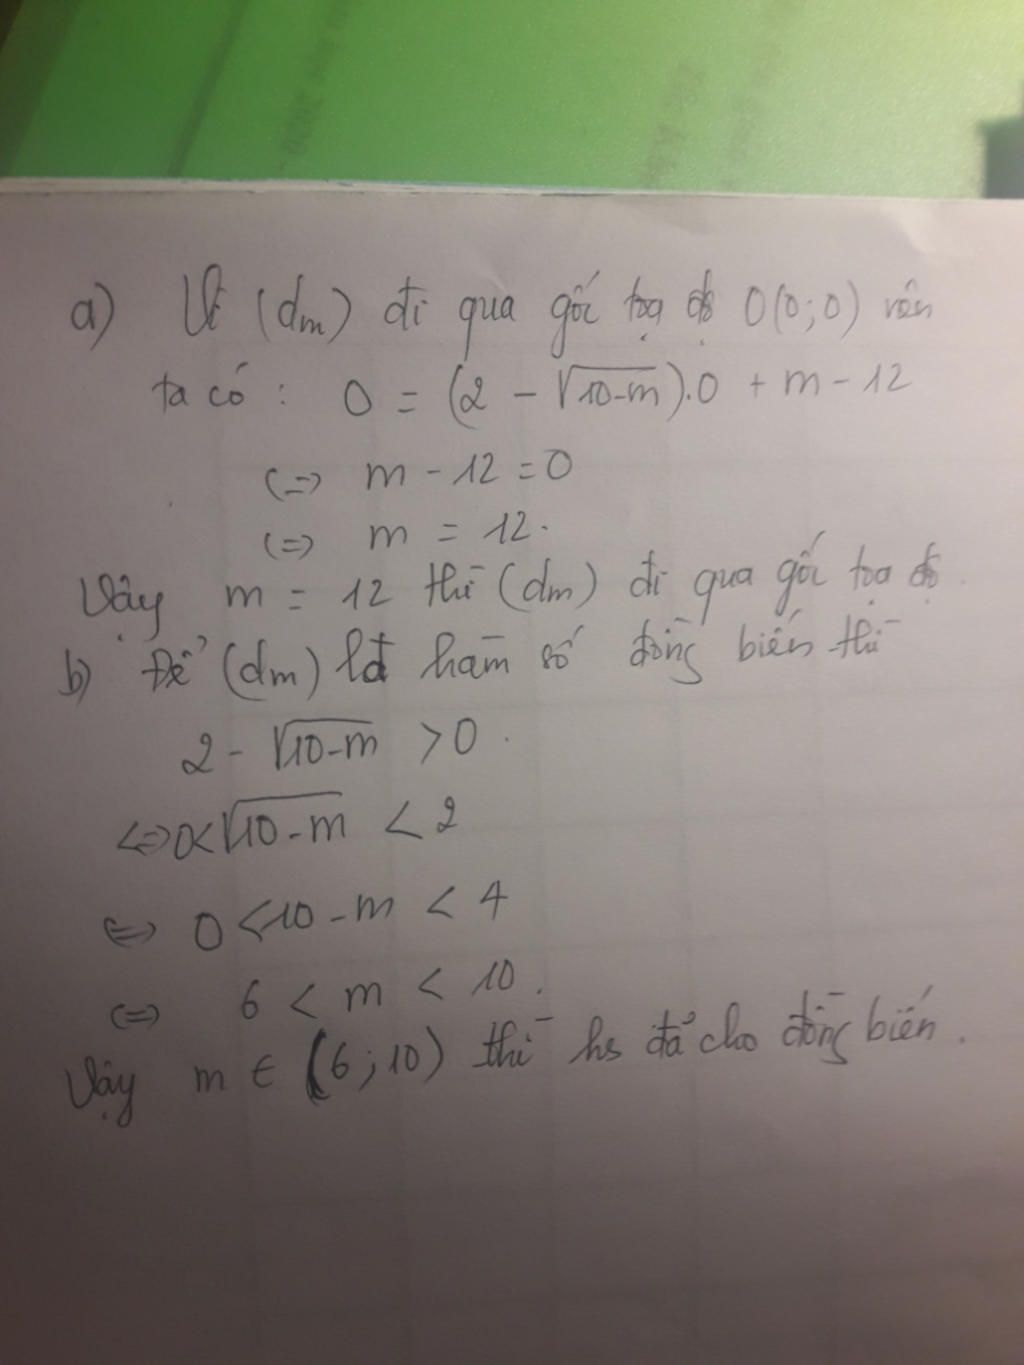 a) Vì (dm) đi qua gốc toạ độ O(0;0) nên
ta có : 0 = (2 - √10-m).0 + m - 12
(=) m - 12 = 0
(=) m = 12.
Vậy m = 12 thì (dm) đi qua gốc toạ độ.
b) Để (dm) là hàm số đồng biến thì
2 - √10-m > 0.
<=> 0<√10-m < 2
<=> 0 < 10 - m < 4
(=) 6 < m < 10.
Vậy m ∈ (6;10) thì hs đã cho đồng biến.